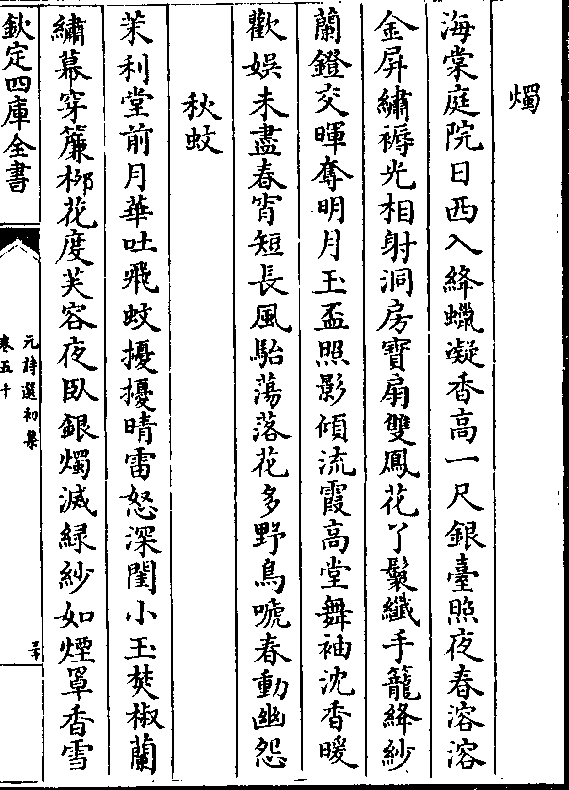 燭
海棠庭院日西入絳蠟凝香高一尺銀臺照夜春溶溶
金屏繡褥光相射洞房寶扇雙鳳花丫鬟纎手籠絳紗
蘭鐙交暉奪明月玉盃照影傾流霞高堂舞袖沈香暖
歡娱未盡春宵短長風駘蕩落花多野鳥嗁春動幽怨
秋蚊
茉利堂前月華吐飛蚊擾擾晴雷怒深閨小玉焚椒蘭
繡幕穿簾柳花度芙容夜臥銀燭滅緑紗如煙罩香雪
欽定四庫全書
元詩選初集
卷五十